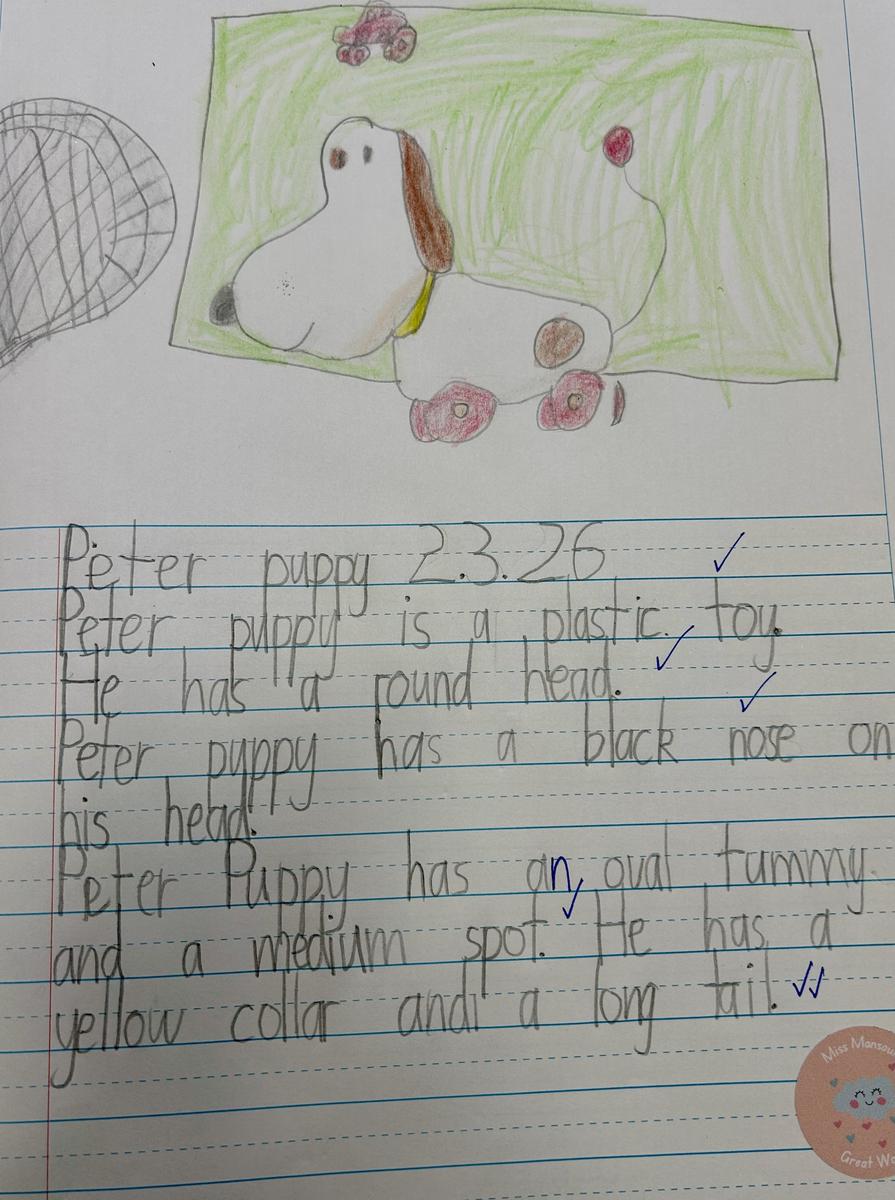 Peter puppy 2.3.26
Peter puppy is a plastic toy.
He has a round head.
Peter puppy has a black nose on
his head.
Peter Puppy has an oval tummy.
and a medium spot. He has a
yellow collar and a long tail.
Miss Mansou
Great Wo